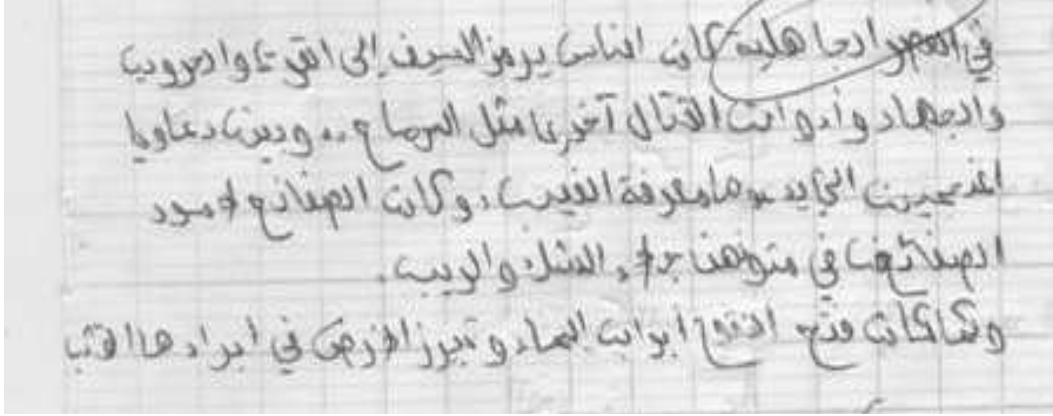 في العصر الجاهلية كان الناس يرمز السيف إلى القوة والحروب
والجهاد وأدوات القتال آخرى مثل الرماح .. وبين دعاويا
المنجمين التي معرفة الغيب، وكان الصفائح لا سود
الصفائف في متونهن جلاء الشك والريب.
فتح الفتوح ابواب السماء و تبرز الأرض في ابرادها القشب